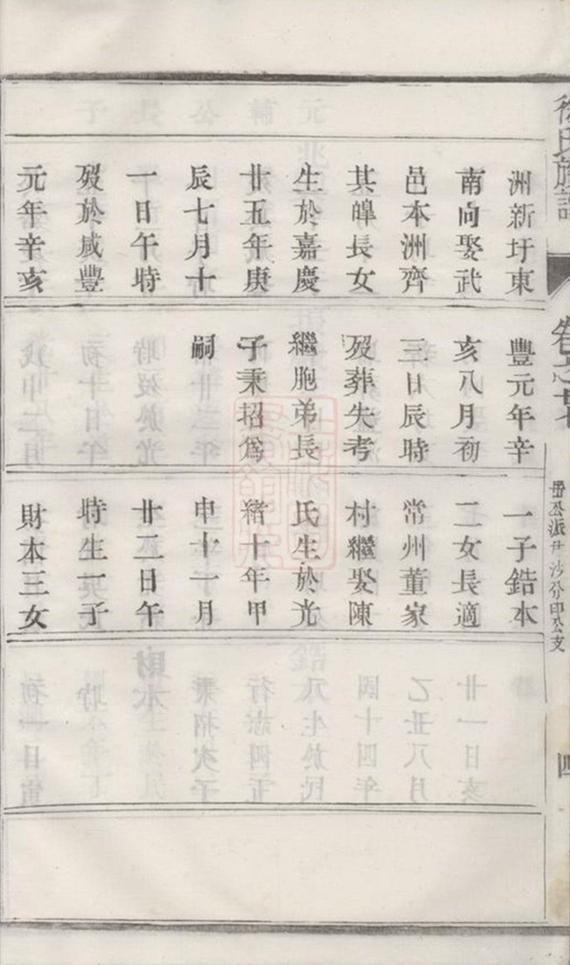 徐氏族譜
洲新圩東
南向娶武
邑本洲齊
其皞長女
生於嘉慶
廿五年庚
辰七月十
一日午時
歿於咸豐
元年辛亥
豐元年辛
亥八月初
三日辰時
歿葬失考
繼胞弟長
子秉招爲
嗣
一子鋯本
二女長適
常州董家
村繼娶陳
氏生於光
緒十年甲
申十一月
廿二日午
時生一子
財本三女